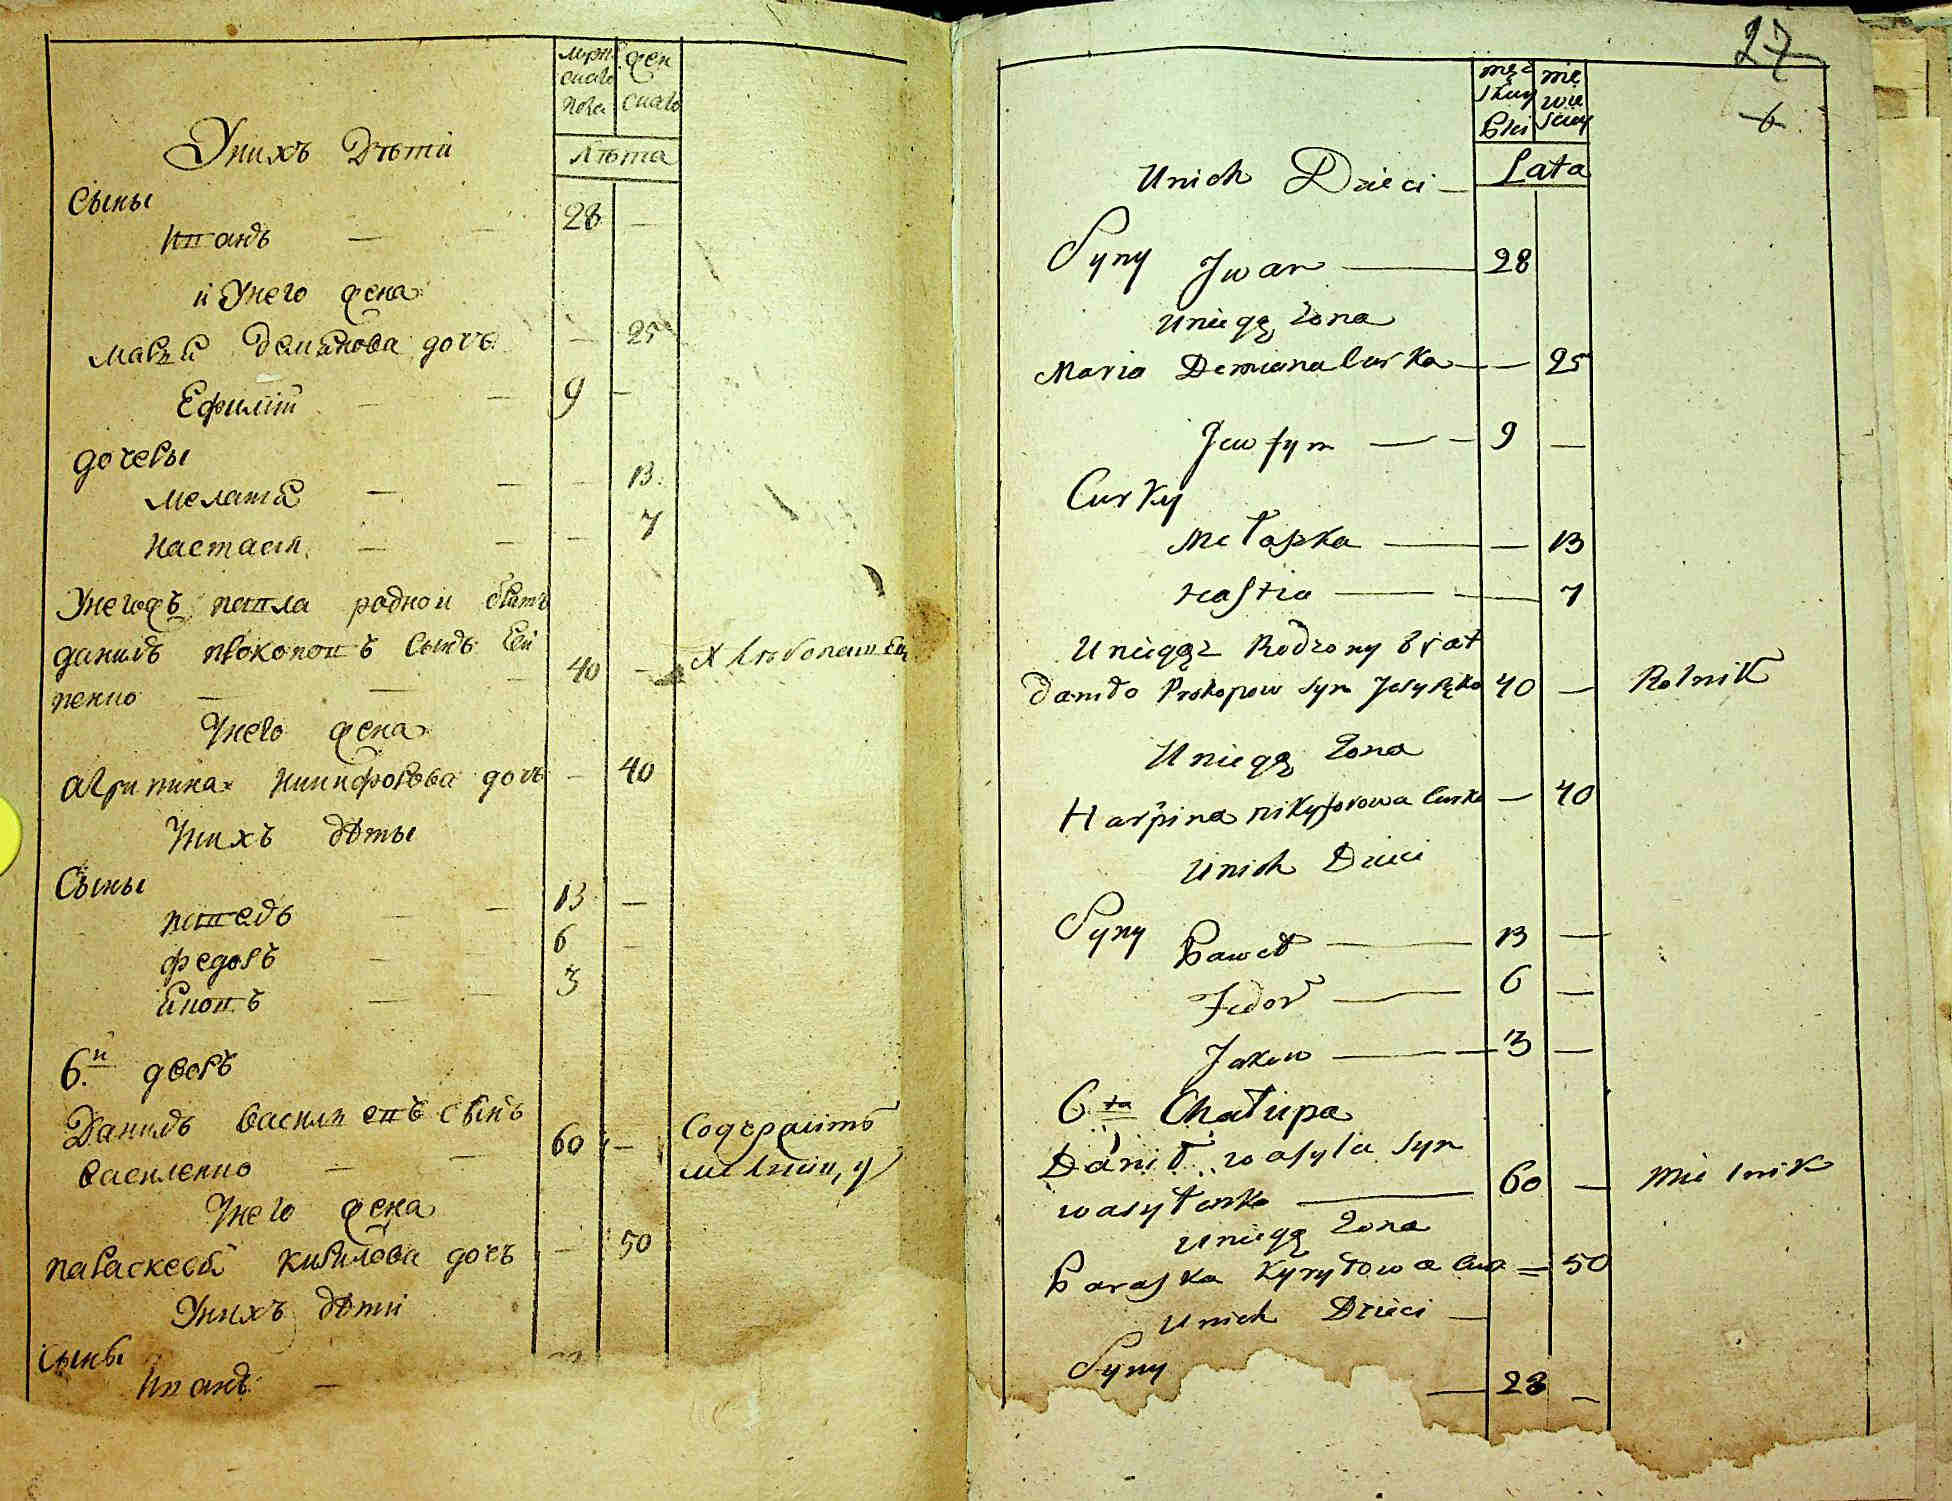 мужскаго пола
женскаго
Лѣта
Унихъ Дѣти
Сыны
Иванъ — — 28 —
и Унего жена
Марія Демянова дочь — 25
Ефимій — — 9 —
дочеры
Мелания — — — 13
Настасия — — — 7
Унегожъ родной братъ
данилъ прокоповъ сынъ
40 — Хлѣбопашец
Унего жена
агрипина Никифорова дочь — 40
Унихъ дѣты
Сыны
павелъ — — 13 —
федоръ — — 6 —
Яковъ — — 3
6.й дворъ
Данилъ Василиевъ сынъ
василенко — — 60 — Содержитъ
мелницу
Унего жена
параскевия Кирилова дочь — 50
Унихъ дѣти
сыны
Иванъ —
27
6
Lata
Unich Dzieci —
Syny Iwan — 28
Uniegą żona
Maria Demiana Curka — — 25
Jewfym — — 9 —
Curky
Mełaszka — — 13
Nastia — — 7
Uniegąż Rodzony brat
Daniło Prokopow syn 40 — Rolnik
Uniegą żona
Harpina nikyforowa Curka — 40
Unich Dzieci
Syny Paweł — 13 —
Fedor — 6 —
Jakow — 3 —
6ta Chałupa
Danił wasyla syn
wasyłenko — 60 — Mielnik
Uniegą żona
Paraska Kyryłowa Cur = 50
Unich Dzieci —
Syny
— 28 —